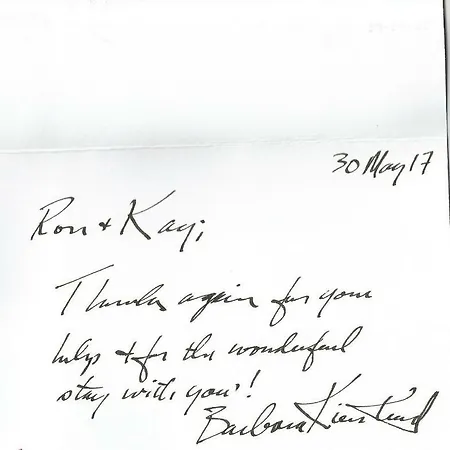 30 May 17
Ron + Kay;
Thanks again for your
help + for the wonderful
stay with you!
Barbara